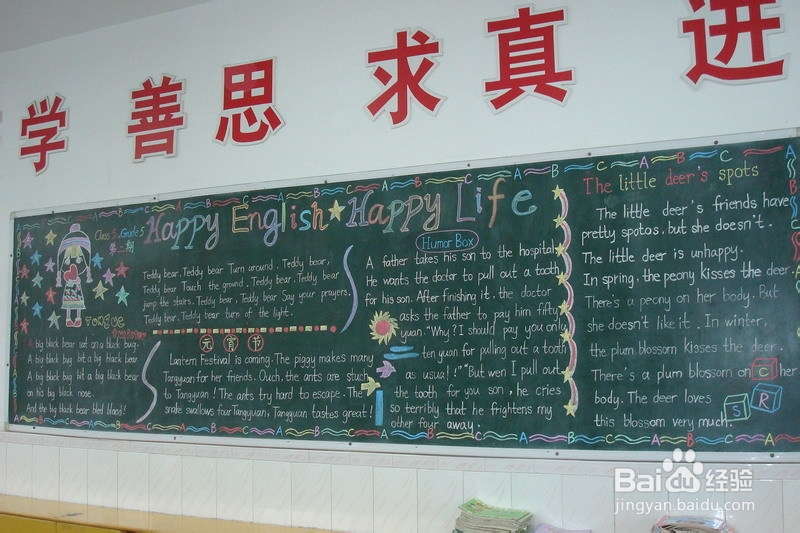 学 善 思 求 真 进
Class 3, Grade 5
Happy English Happy Life
Teddy bear, Teddy bear Turn around. Teddy bear,
Teddy bear Touch the ground. Teddy bear. Teddy bear
jump the stairs. Teddy bear, Teddy bear Say your prayers.
Teddy bear. Teddy bear turn of the light.
Tongue
A big black bear sat on a black bug.
A big black bug bit a big black bear
A big black bug bit a big black bear
on his big black nose.
And the big black bear bled blood!
元 宵 节
Lantern Festival is coming. The piggy makes many
Tangyuan for her friends. Ouch, the ants are stuck
to Tangyuan! The ants try hard to escape. The
snake swallows four Tangyuan, Tangyuan tastes great!
Humor Box
A father takes his son to the hospital.
He wants the doctor to pull out a tooth
for his son. After finishing it, the doctor
asks the father to pay him fifty
yuan. "Why? I should pay you only
ten yuan for pulling out a tooth
as usual!" "But wen I pull out
the tooth for you son, he cries
so terribly that he frightens my
other four away.
The little deer's spots
The little deer's friends have
pretty spotos. but she doesn't.
The little deer is unhappy.
In spring, the peony kisses the deer.
There's a peony on her body. But
she doesn't like it. In winter,
the plum blossom kisses the deer.
There's a plum blossom on her
body. The deer loves
this blossom very much.
C
S R
Baidu 经验
jingyan.baidu.com